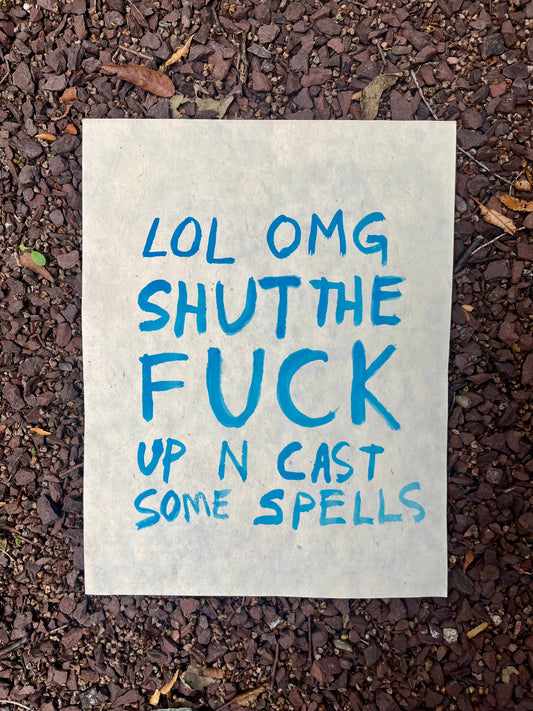 LOL OMG
SHUT THE
FUCK
UP N CAST
SOME SPELLS